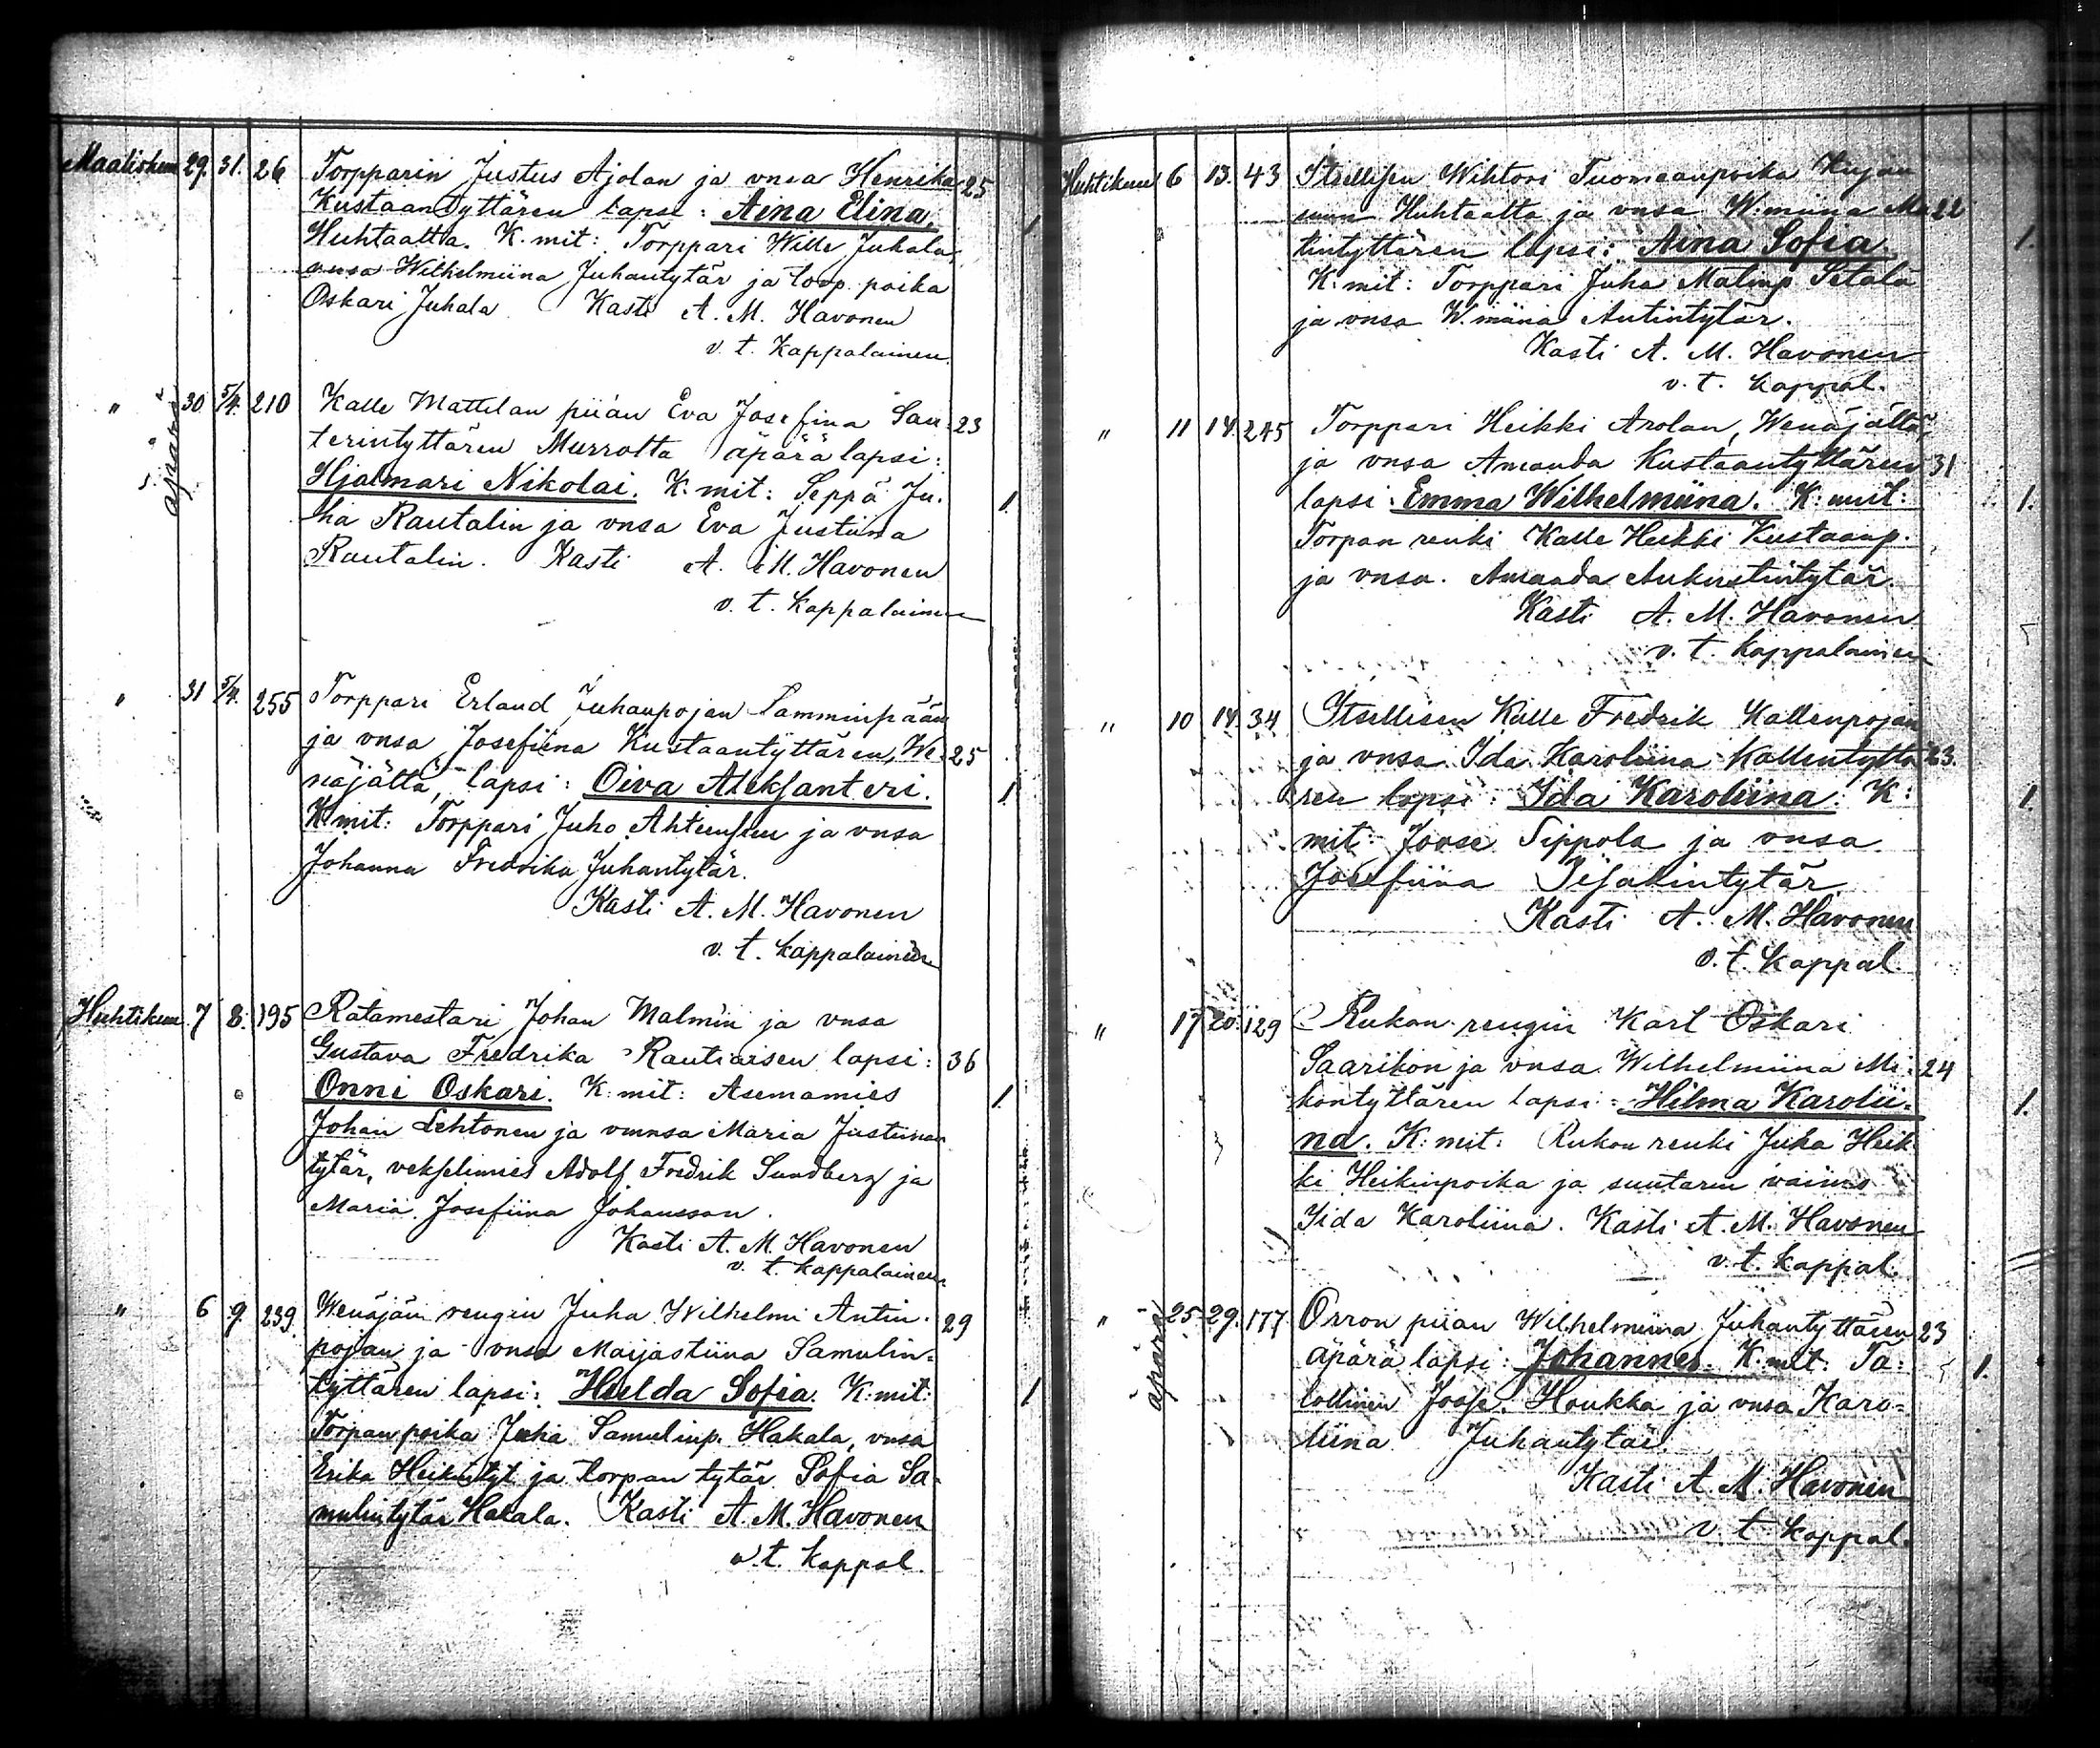 Maaliskuu 29. 31. 26 Torpparin Justus Ajolan ja vnsa Henrika 25
Kustaantyttären lapsi: Aina Elina,
Huhtaalta. K. mit: Torppari Wille Juhala, 1
vnsa Wilhelmiina Juhantytär ja torp. poika
Oskari Juhala. Kasti A. M. Havonen
v. t. Kappalainen.
" äpärä 30 5/4. 210 Kalle Mattilan piian Eva Josefina San- 23
terintyttären Murrolta äpärä lapsi:
Hjalmari Nikolai. K. mit: Seppä Ju- 1.
ha Rautalin ja vnsa Eva Justiina
Rautalin. Kasti A. M. Havonen
v. t. kappalainen
" 31 5/4. 255 Torppari Erland Juhanpojan Lamminpään
ja vnsa Josefiina Kustaantyttären, We- 25
näjältä, lapsi: Oiva Aleksanteri. 1.
K. mit: Torppari Juho Ahtensuu ja vnsa
Johanna Fredrika Juhantytär.
Kasti A. M. Havonen
v. t. kappalainen
Huhtikuu 7 8. 195 Ratamestari Johan Malmin ja vnsa
Gustava Fredrika Rautiaisen lapsi: 36
Onni Oskari. K: mit: Asemamies 1.
Johan Lehtonen ja vmnsa Maria Justiinan
tytär, vekselimies Adolf Fredrik Sundberg ja
Maria Josefiina Johansson.
Kasti A. M. Havonen
v. t. kappalainen
" 6 9. 239. Wenäjän rengin Juha Wilhelmi Antin- 29
pojan ja vnsa Maijastiina Samulin-
tyttären lapsi: Hulda Sofia. K: mit: 1
Torpanpoika Juha Samulinp. Hakala, vnsa
Erika Heikintyt ja torpan tytär Sofia Sa-
mulintytär Hakala. Kasti A. M. Havonen
v. t. kappal.
Huhtikuu 6 13. 43 Itsellisen Wihtori Tuomaanpoika
Huhtaalta ja vnsa W:miina Ma 22
tintyttären lapsi: Aina Sofia 1.
K. mit: Torppari Juha Matinp. Setälä
ja vnsa W.miina Antintytär.
Kasti A. M. Havonen
v. t. kappal.
" 11 14. 245 Torppari Heikki Arolan, Wenäjältä,
ja vnsa Amanda Kustaantyttären 31
lapsi: Emma Wilhelmiina. K: mit: 1.
Torpan renki Kalle Heikki Kustaanp.
ja vnsa. Amanda Aukustintytär.
Kasti A. M. Havonen
v. t. kappalainen
" 10 14. 34 Itsellisen Kalle Fredrik Kallenpojan
ja vnsa Ida Karoliina Kallentyttä 23.
ren lapsi: Ida Karoliina. K: 1.
mit: Joose Seppola ja vnsa
Josefiina Iisakintytär
Kasti A. M. Havonen
v. t. kappal.
" 17 20. 129 Rukon rengin Karl Oskari
Saarikon ja vnsa Wilhelmiina Mi- 24
kontyttären lapsi: Hilma Karolii- 1.
na. K: mit: Rukon renki Juha Heik
ki Heikinpoika ja suutarin vaimo
Iida Karoliina. Kasti A. M. Havonen
v. t. kappal.
" äpärä 25 29. 177 Orron piian Wilhelmiina Juhantyttären 23
äpärä lapsi: Johannes. K: mit: Ta- 1.
lollinen Joose Houkka ja vnsa Karo-
liina Juhantytär
Kasti A. M. Havonen
v. t. kappal.